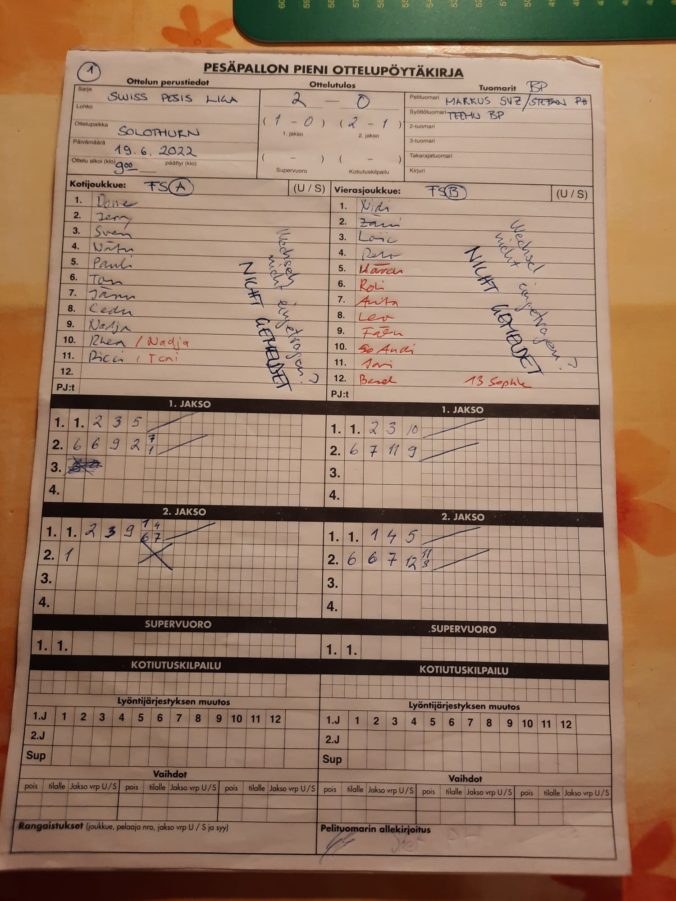 1 PESÄPALLON PIENI OTTELUPÖYTÄKIRJA
Ottelun perustiedot Ottelutulos Tuomarit BP
Sarja SWISS PESIS LIGA 2 – 0 Pelituomari MARKUS SVZ / STEFAN
Lohko (1 – 0) (2 – 1) Syöttötuomari TEEMU BP
Ottelupaikka SOLOTHURN 1. jakso 2. jakso 2-tuomari
Päivämäärä 19.6.2022 3-tuomari
( – ) ( – ) Takarajatuomari
Ottelu alkoi (klo) 9:00 päättyi (klo) Supervuoro Kotiutuskilpailu Kirjuri
Kotijoukkue: FS A (U / S) Vierasjoukkue: FS B (U / S)
1. 1.
2. Jerry 2. Zämi
3. Sven 3. Loic
4. 4.
5. Pauli 5.
6. Tom 6. Roli
7. 7. Anita
8. Cedu 8. Leo
9. Nadja 9.
10. Rhea / Nadja 10. Andi
11. Ricci / Toni 11.
12. 12. 13 Sophie
PJ:t PJ:t
Wechsel nicht eingetragen?
NICHT GEMELDET
Wechsel nicht eingetragen?
NICHT GEMELDET
1. JAKSO 1. JAKSO
1. 1. 2 3 5 1. 1. 2 3 10
2. 6 6 9 2 7 1 2. 6 7 11 9
3. 3.
4. 4.
2. JAKSO 2. JAKSO
1. 1. 2 3 9 1 4 6 7 1. 1. 1 4 5
2. 1 2. 6 6 7 12 11 8
3. 3.
4. 4.
SUPERVUORO SUPERVUORO
1. 1. 1. 1.
KOTIUTUSKILPAILU KOTIUTUSKILPAILU
Lyöntijärjestyksen muutos Lyöntijärjestyksen muutos
1.J 1 2 3 4 5 6 7 8 9 10 11 12 1.J 1 2 3 4 5 6 7 8 9 10 11 12
2.J 2.J
Sup Sup
Vaihdot Vaihdot
pois tilalle Jakso vrp U / S pois tilalle Jakso vrp U / S pois tilalle Jakso vrp U / S pois tilalle Jakso vrp U / S pois tilalle Jakso vrp U / S pois tilalle Jakso vrp U / S
Rangaistukset (joukkue, pelaaja nro, jakso vrp U / S ja syy) Pelituomarin allekirjoitus